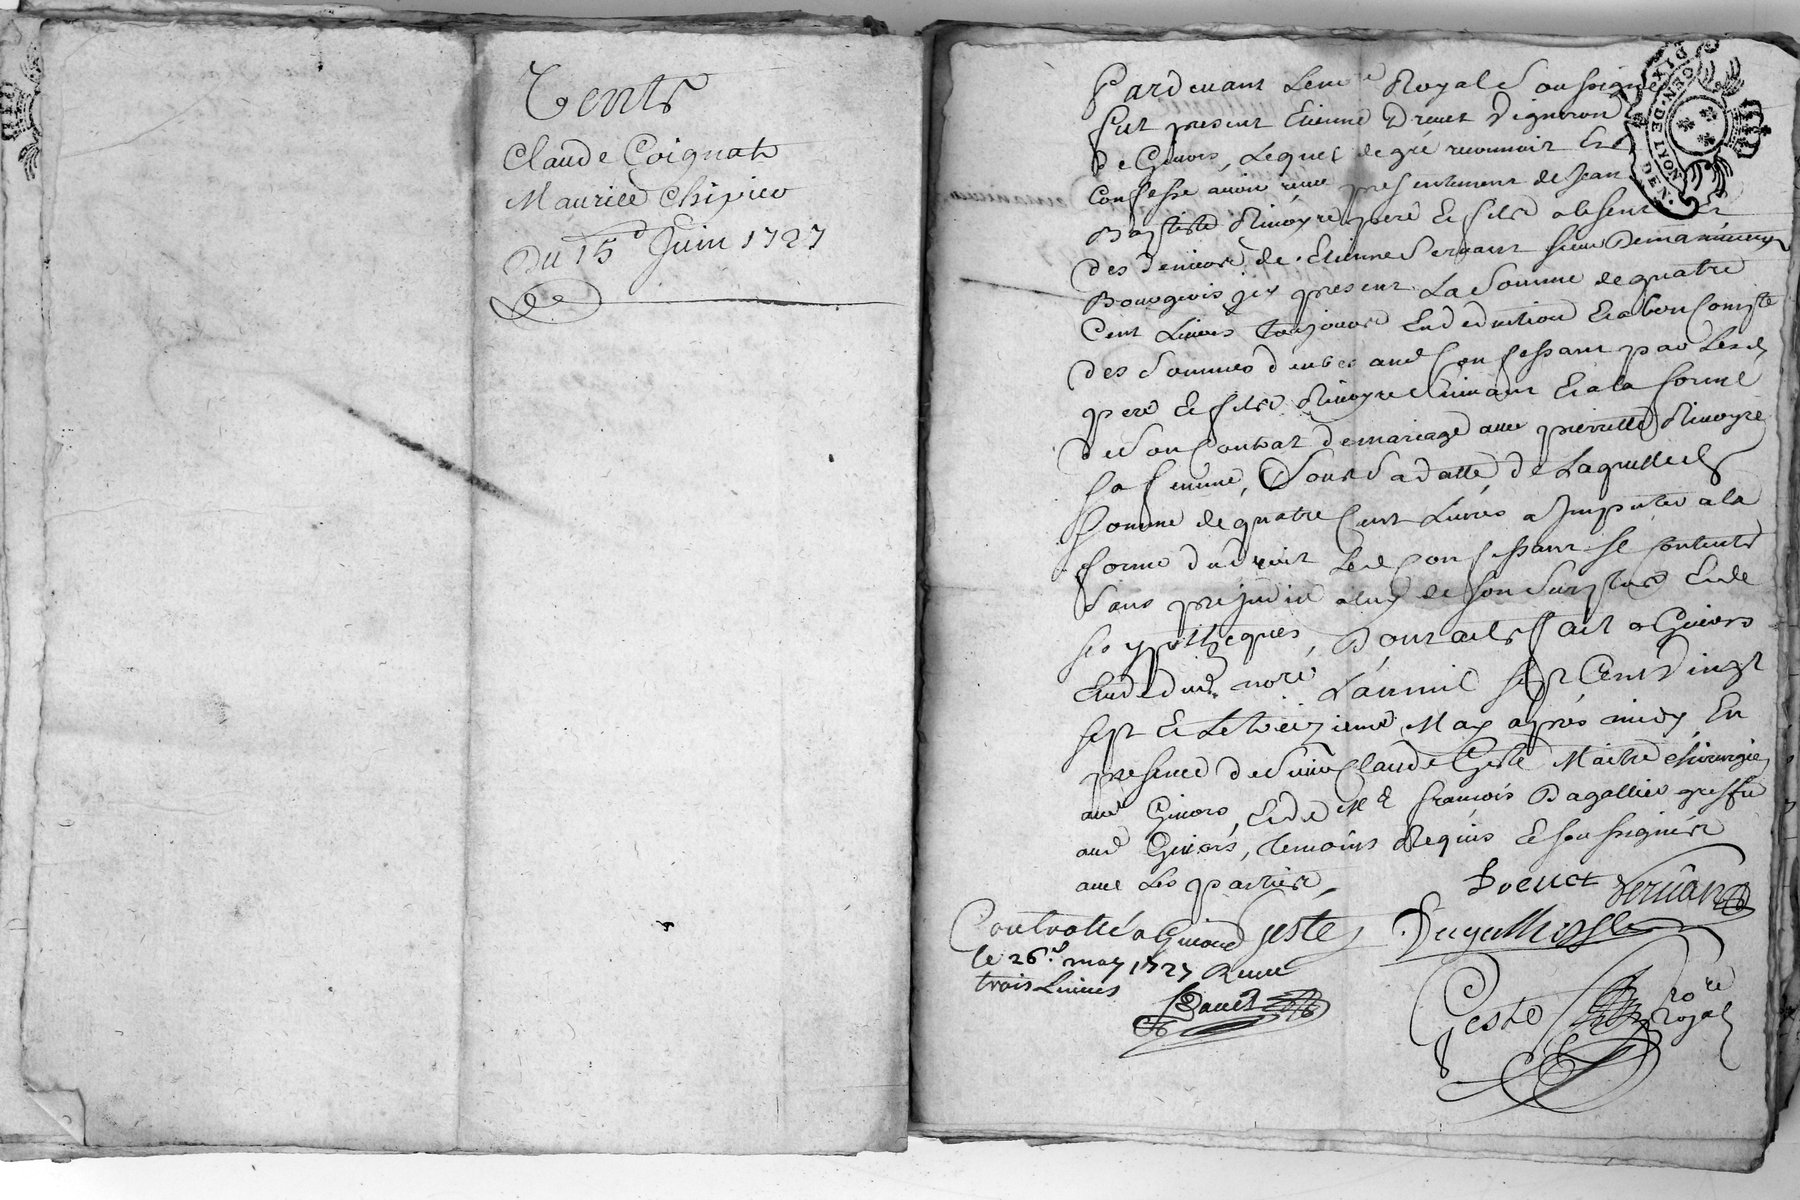 Vente
Claude Coignat
Maurice Chipier
Du 15e Juin 1727
Pardevant Le nore Royal Soussigné
fut present Etienne Drevet Vigneron
de Givors, Lequel de gré reconnoit Et
Confesse avoir receu presentement de Jean
Baptiste Rivoyre pere Et fils absent
des deniers de Etienne Servant sieur
Bourgeois icy present La Somme de quatre
Cent Livres toujours En deduction Et a bon Compte
des Sommes deubes aud Confessant par Lesd
pere Et fils Rivoyre suivant Et a la forme
de Son Contrat de mariage avec pierrette Rivoyre
Sa femme, Sous Sa datte de Laquelle
Somme de quatre Cent Livres a Imputer a la
forme du droit Led Confessant Se Contente
Sans prejudice a luy de Son Surplus Et de
ses ypotheques, Dont acte fait a Givors
Etude dud. nore L'an mil sept Cent Vingt
sept Et Le treizieme May après midy En
presence de Sieur Claude Geste Maitre chirurgien
aud Givors, Et de Me françois Bagallier greffier
aud Givors, temoins Requis Et soussignés
avec Les parties,
Drevet Servant
Controllé a Givors Geste
le 26e may 1727 Receu
trois Livres
Geste nore Royal
DIX DEN.
GEN. DE LYON